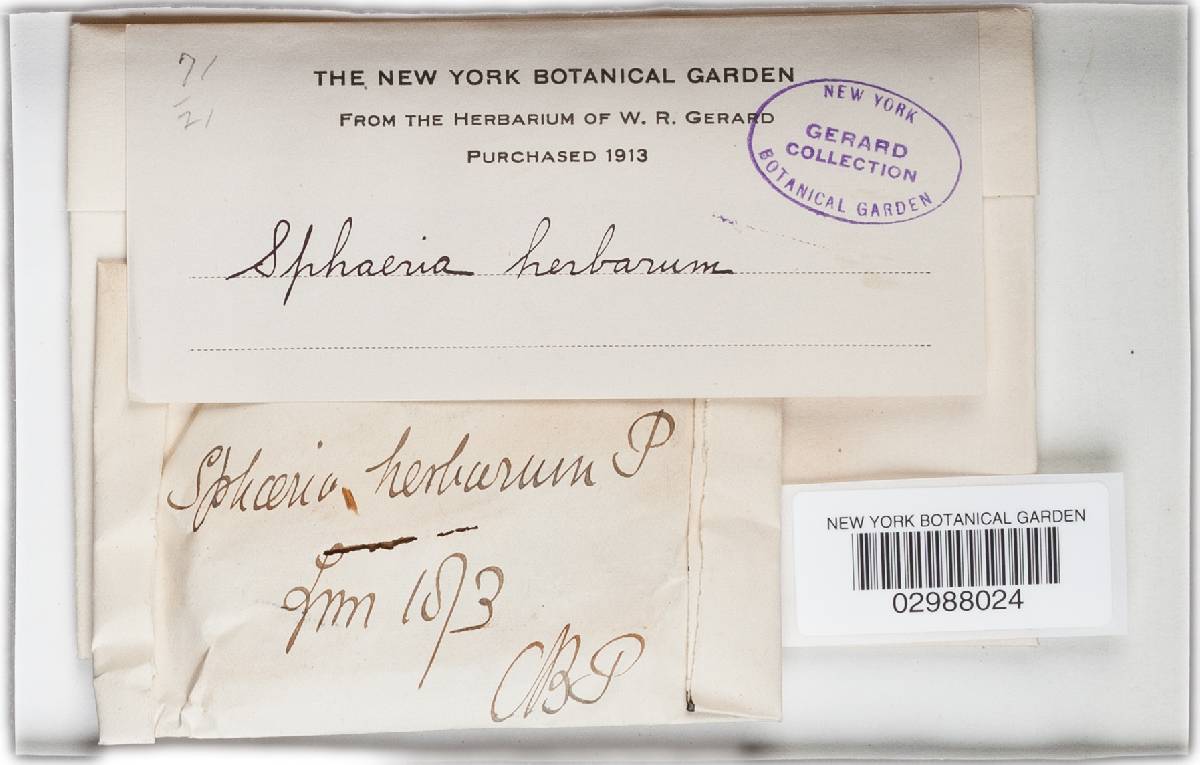 71
21
THE NEW YORK BOTANICAL GARDEN
FROM THE HERBARIUM OF W. R. GERARD
PURCHASED 1913
NEW YORK
GERARD
COLLECTION
BOTANICAL GARDEN
Sphaeria herbarum
Sphæria herbarum P
1873
NEW YORK BOTANICAL GARDEN
02988024